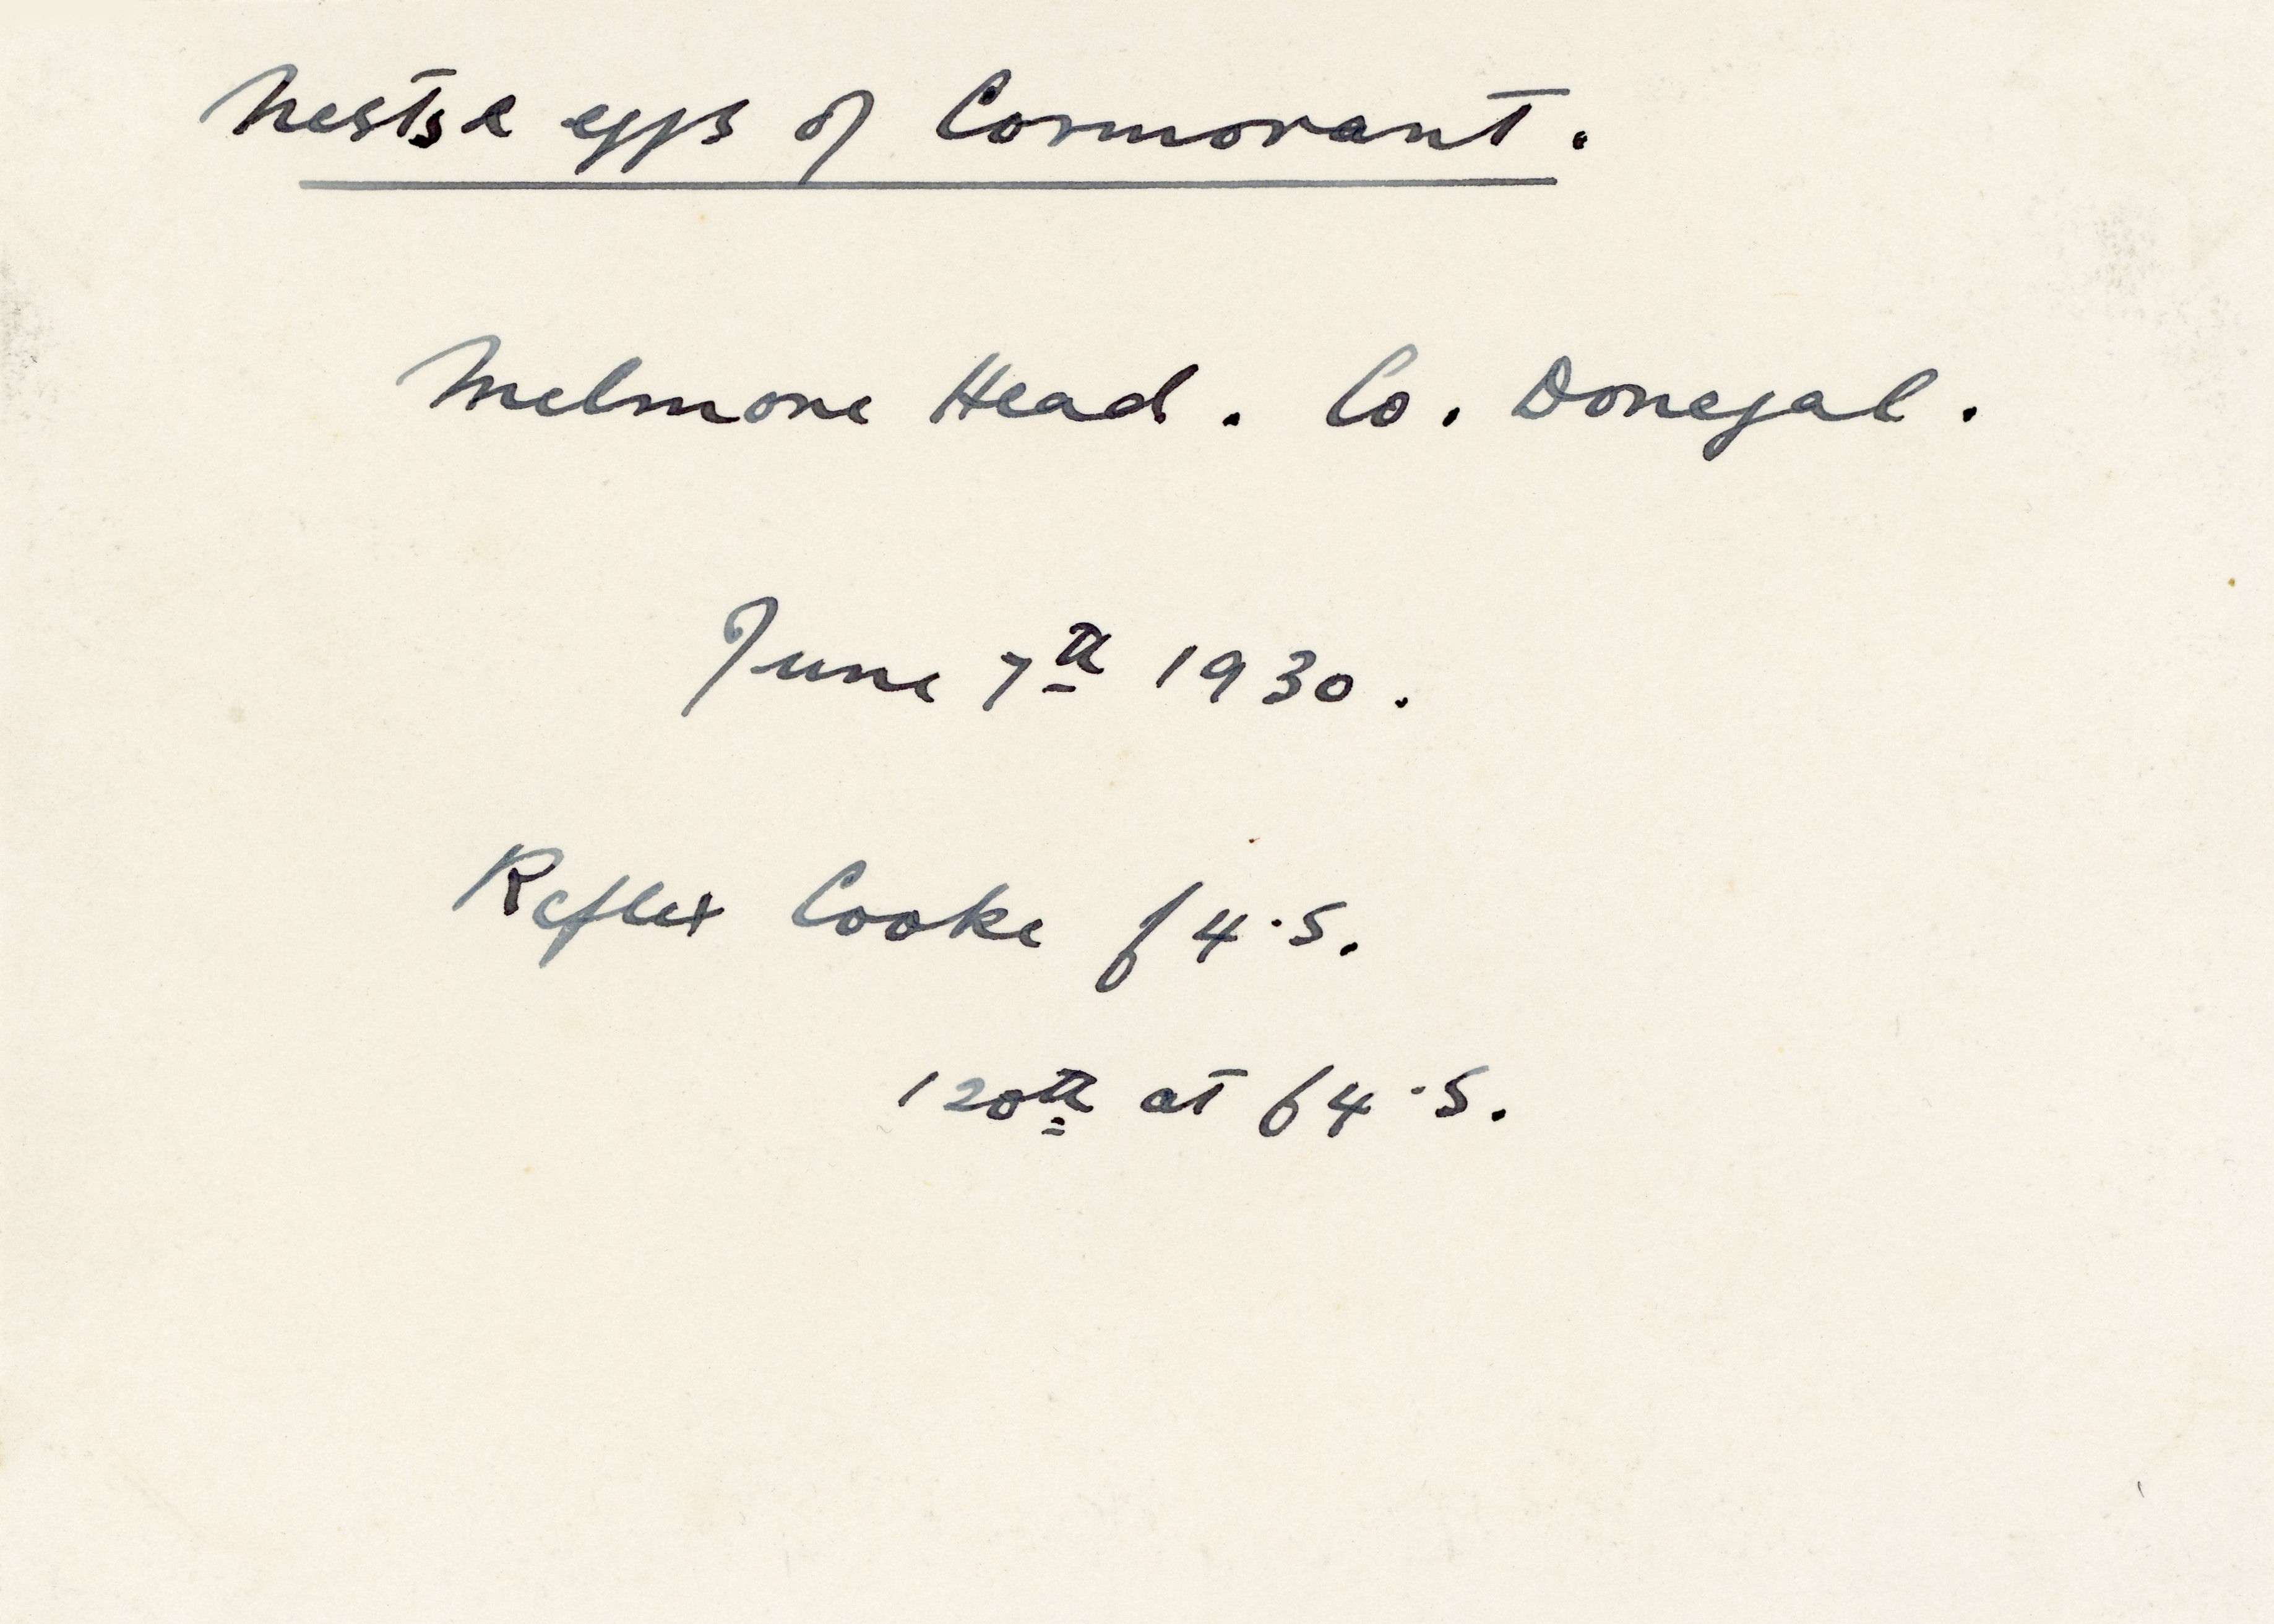 Nests & eggs of Cormorant.
Melmore Head. Co. Donegal.
June 7th 1930.
Reflex Cooke f4·5.
120th at f4·5.